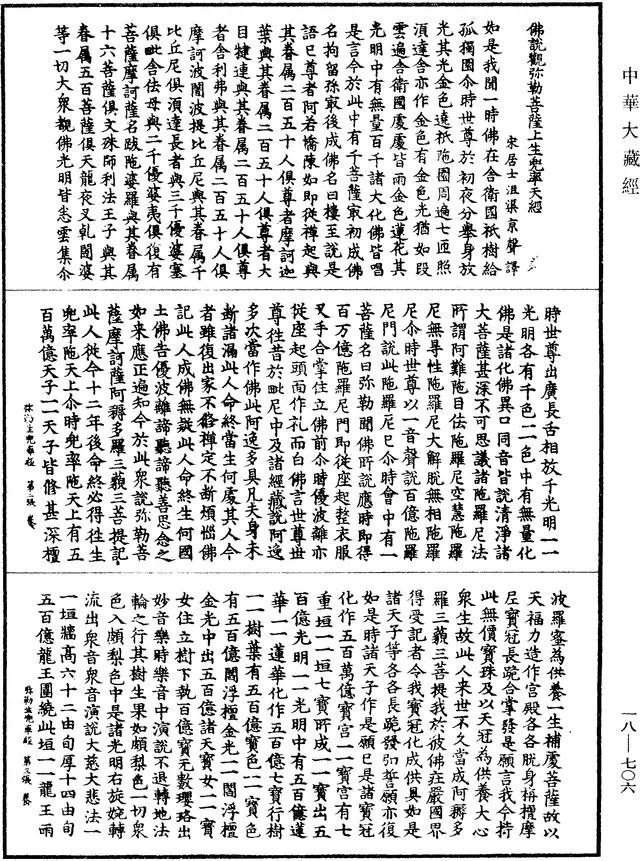 中華大藏經
一八—七〇六
佛說觀弥勒菩薩上生兜率天經
宋居士沮渠京聲譯
如是我聞一時佛在舍衛國祇樹給
孤獨園尒時世尊於初夜分舉身放
光其光金色遶祇陁園周遍七帀照
須達舍亦作金色有金色光猶如段
雲遍舍衛國處處皆雨金色蓮花其
光明中有無量百千諸大化佛皆唱
是言今於此中有千菩薩冣初成佛
名拘留孫冣後成佛名曰樓至說是
語已尊者阿若憍陳如即從禪起與
其眷屬二百五十人俱尊者摩訶迦
葉與其眷屬二百五十人俱尊者大
目犍連與其眷屬二百五十人俱尊
者舍利弗與其眷屬二百五十人俱
摩訶波闍波提比丘尼與其眷屬千
比丘尼俱須達長者與三千優婆塞
俱毗舍佉母與二千優婆夷俱復有
菩薩摩訶薩名跋陁婆羅與其眷屬
十六菩薩俱文殊師利法王子與其
眷屬五百菩薩俱天龍夜叉乹闥婆
等一切大衆覩佛光明皆悉雲集尒
時世尊出廣長舌相放千光明一一
光明各有千色一一色中有無量化
佛是諸化佛異口同音皆說清淨諸
大菩薩甚深不可思議諸陁羅尼法
所謂阿難陁目佉陁羅尼空慧陁羅
尼無㝵性陁羅尼大解脫無相陁羅
尼尒時世尊以一音聲說百億陁羅
尼門說此陁羅尼已尒時會中有一
菩薩名曰弥勒聞佛所說應時即得
百万億陁羅尼門即從座起整衣服
叉手合掌住立佛前尒時優波離亦
從座起頭面作礼而白佛言世尊世
尊往昔於毗尼中及諸經藏說阿逸
多次當作佛此阿逸多具凡夫身未
斷諸漏此人命終當生何處其人今
者雖復出家不修禪定不斷煩惱佛
記此人成佛無疑此人命終生何國
土佛告優波離諦聽諦聽善思念之
如來應正遍知今於此衆說弥勒菩
薩摩訶薩阿耨多羅三藐三菩提記
此人從今十二年後命終必得往生
兜率陁天上尒時兜率陁天上有五
百萬億天子一一天子皆修甚深檀
弥勒上兜率經 第二張 養
波羅蜜為供養一生補處菩薩故以
天福力造作宮殿各各脫身栴檀摩
尼寶冠長跪合掌發是願言我今持
此無價寶珠及以天冠為供養大心
衆生故此人來世不久當成阿耨多
羅三藐三菩提我於彼佛莊嚴國界
得受記者令我寶冠化成供具如是
諸天子等各各長跪發弘誓願亦復
如是時諸天子作是願已是諸寶冠
化作五百萬億寶宮一一寶宮有七
重垣一一垣七寶所成一一寶出五
百億光明一一光明中有五百億蓮
華一一蓮華化作五百億七寶行樹
一一樹葉有五百億寶色一一寶色
有五百億閻浮檀金光一一閻浮檀
金光中出五百億諸天寶女一一寶
女住立樹下執百億寶無數瓔珞出
妙音樂時樂音中演說不退轉地法
輪之行其樹生果如頗梨色一切衆
色入頗梨色中是諸光明右旋婉轉
流出衆音衆音演說大慈大悲法一
一垣牆高六十二由旬厚十四由旬
五百億龍王圍繞此垣一一龍王雨
弥勒上兜率經 第三張 養